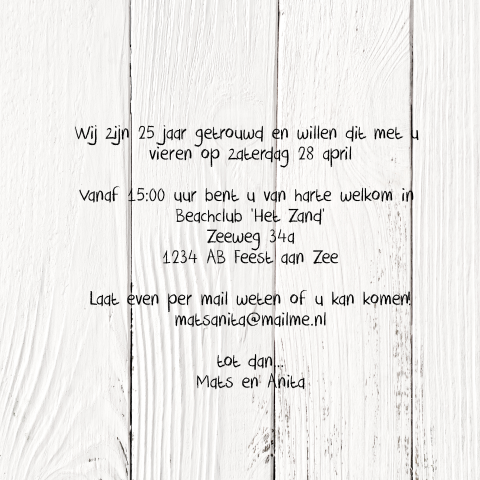 Wij zijn 25 jaar getrouwd en willen dit met u
vieren op zaterdag 28 april
Vanaf 15:00 uur bent u van harte welkom in
Beachclub 'Het Zand'
Zeeweg 34a
1234 AB Feest aan Zee
Laat even per mail weten of u kan komen!
matsanita@mailme.nl
tot dan...
Mats en Anita